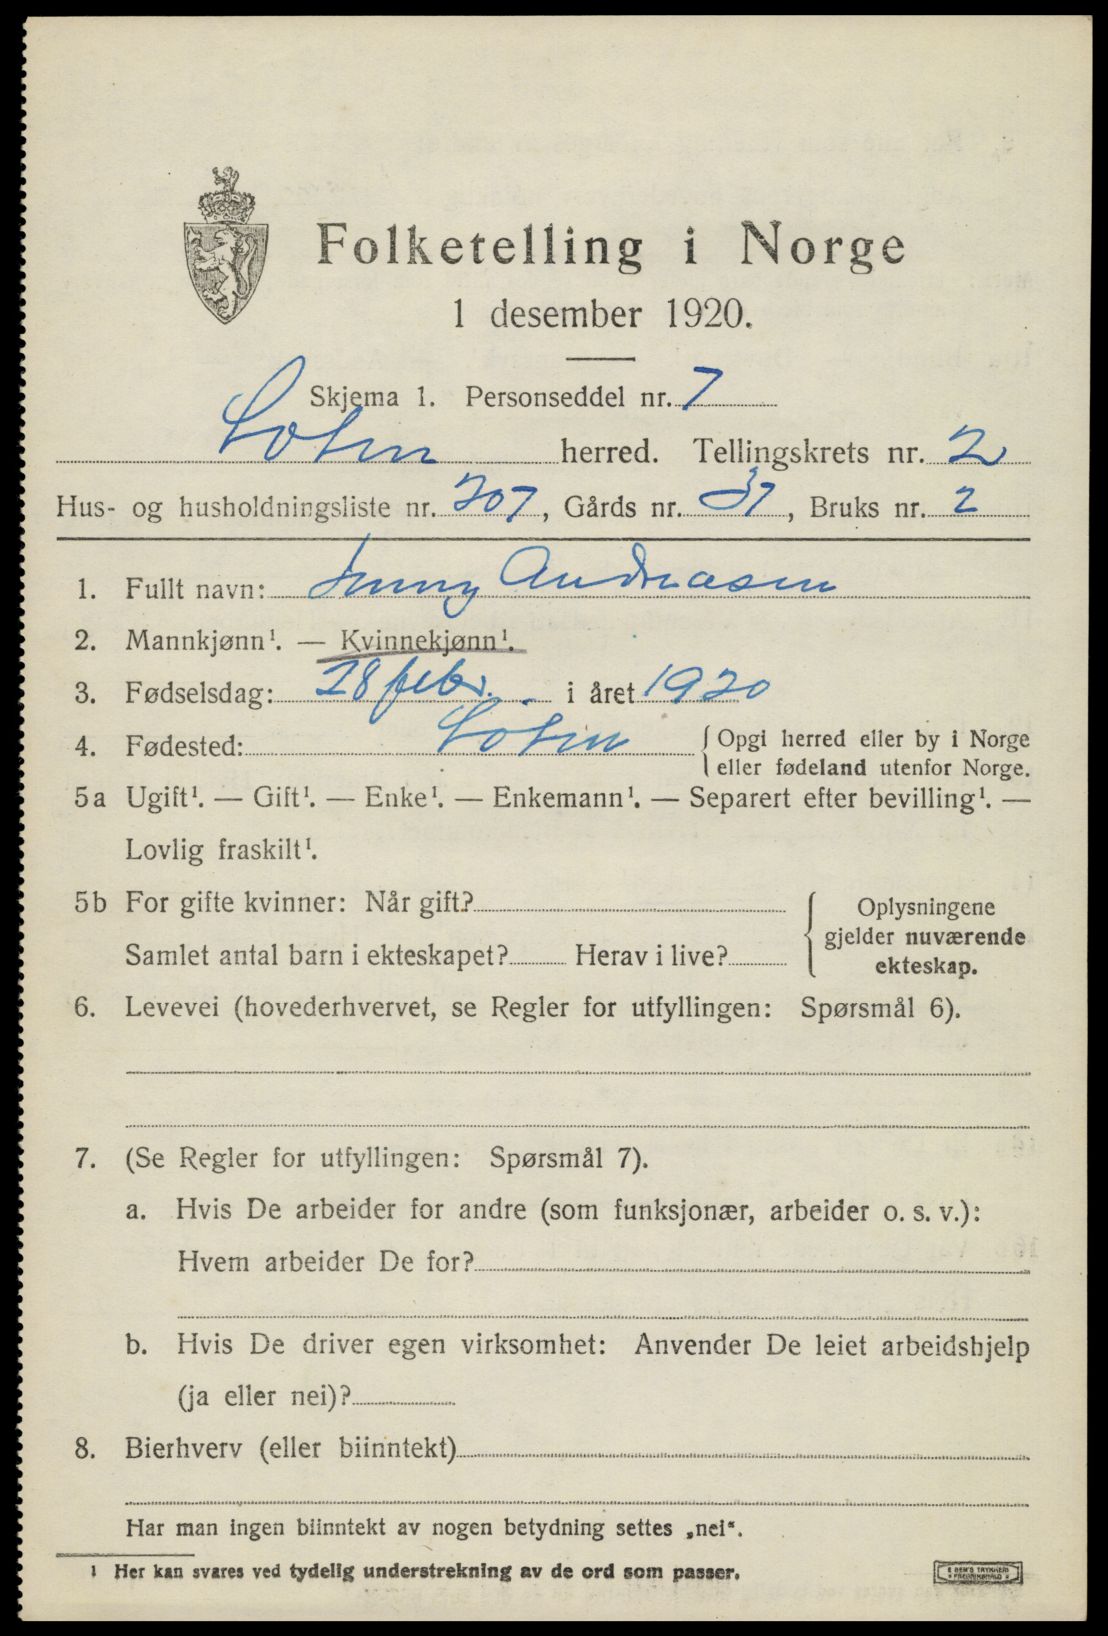 Folketelling i Norge
1 desember 1920.
Skjema 1. Personseddel nr. 7
Løten herred. Tellingskrets nr. 2
Hus- og husholdningsliste nr. 207, Gårds nr. 37, Bruks nr. 2
1. Fullt navn: Jenny Andreasen
2. Mannkjønn¹. — Kvinnekjønn¹.
3. Fødselsdag: 28 febr. i året 1920
4. Fødested: Løten { Opgi herred eller by i Norge
eller fødeland utenfor Norge.
5a Ugift¹. — Gift¹. — Enke¹. — Enkemann¹. — Separert efter bevilling¹. —
Lovlig fraskilt¹.
5b For gifte kvinner: Når gift?
Samlet antal barn i ekteskapet? Herav i live?
{ Oplysningene
gjelder nuværende
ekteskap.
6. Levevei (hovederhvervet, se Regler for utfyllingen: Spørsmål 6).
7. (Se Regler for utfyllingen: Spørsmål 7).
a. Hvis De arbeider for andre (som funksjonær, arbeider o. s. v.):
Hvem arbeider De for?
b. Hvis De driver egen virksomhet: Anvender De leiet arbeidshjelp
(ja eller nei)?
8. Bierhverv (eller biinntekt)
Har man ingen biinntekt av nogen betydning settes „nei“.
¹ Her kan svares ved tydelig understrekning av de ord som passer.